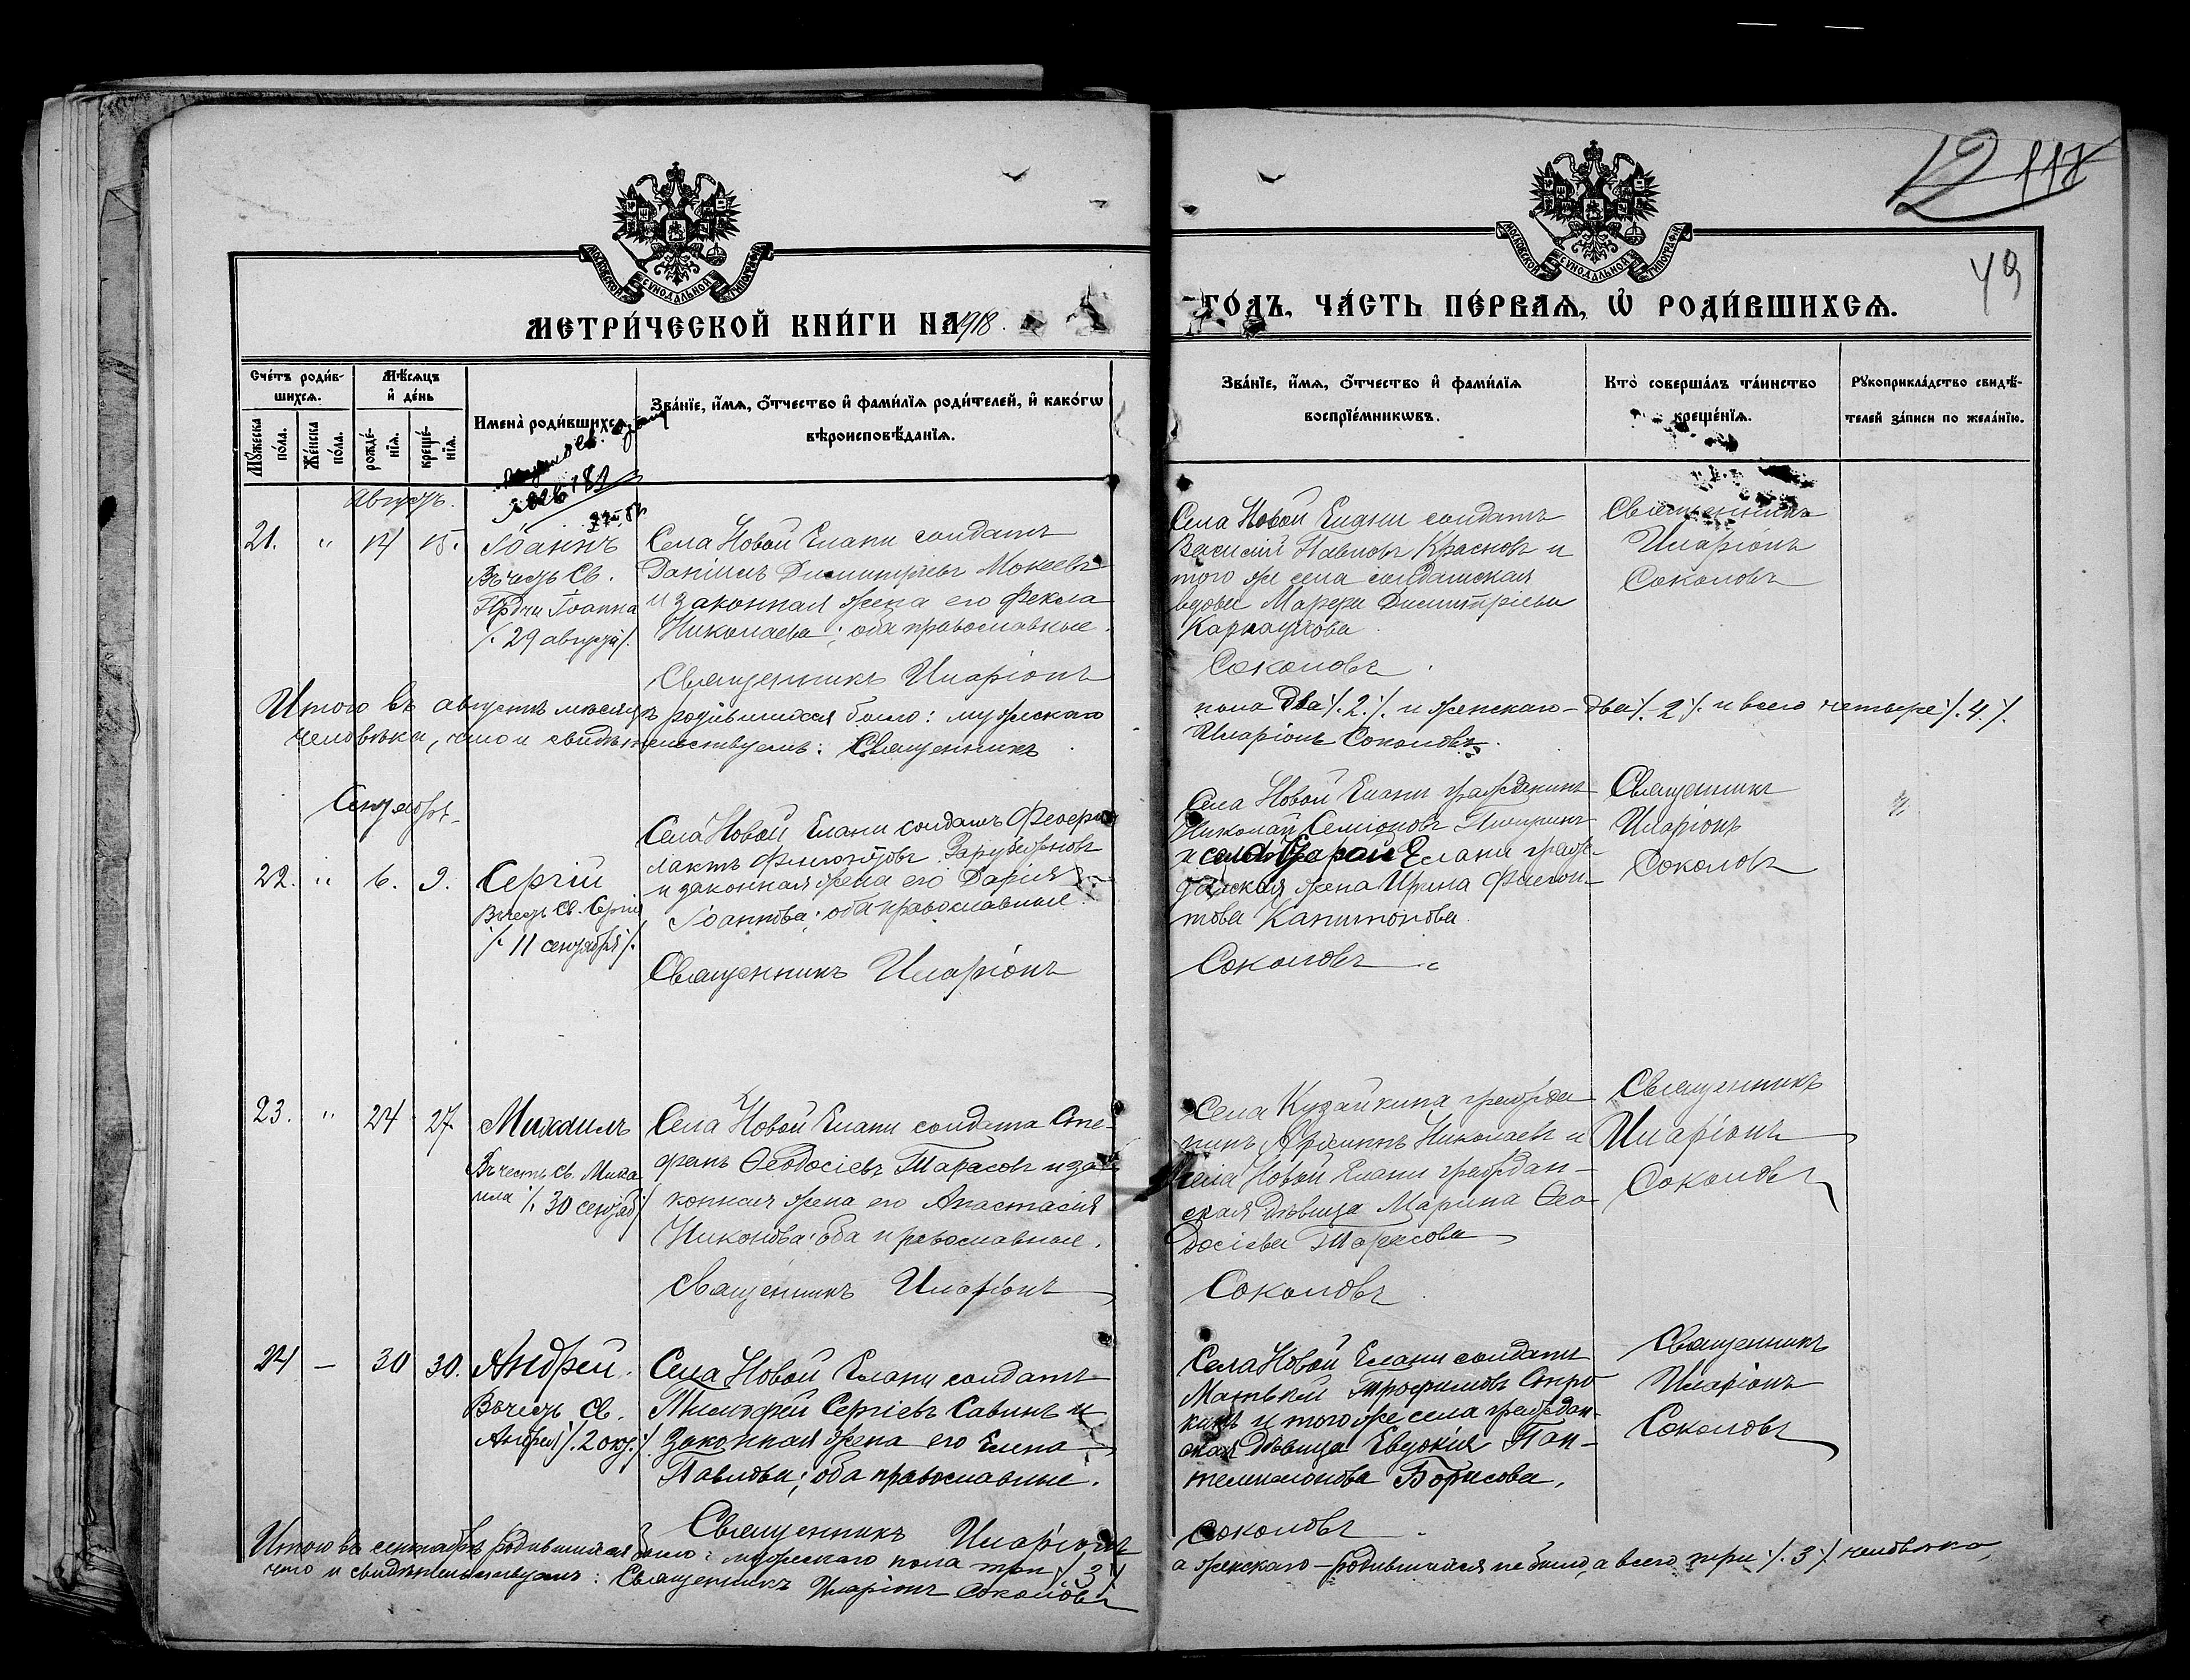 12 117
49
МОСКОВСКОЙ СѴНОДАЛЬНОЙ ТИПОГРАФІИ
МОСКОВСКОЙ СѴНОДАЛЬНОЙ ТИПОГРАФІИ
МЕТРИ́ЧЕСКОЙ КНИ́ГИ НА 1918
ГО́ДЪ, ЧА́СТЬ ПЕ́РВАЯ, Ѽ РОДИ́ВШИХСЯ.
Сче́тъ роди́в-
шихся.
Мꙋ́жеска по́ла.
Же́нска по́ла.
Мѣ́сяцъ
и҆ де́нь
рожде́-
нїя.
креще́-
нїя.
Имена̀ роди́вшихся.
Зва́нїе, и҆́мя, ѻ҆́тчество и҆ фами́лїя роди́телей, и҆ како́гѡ
вѣроисповѣ́данїя.
Зва́нїе, и҆́мя, ѻ҆́тчество и҆ фами́лїя
воспрїе́мникѡвъ.
Кто̀ соверша́лъ та́инство
креще́нїя.
Рꙋкоприкла́дство свидѣ́-
телей за́писи по жела́нїю.
Августъ.
21. " 14 15. Іоаннъ
Въ честь Св.
Прдчи Іоанна
/. 29 августа /.
Села Новой Елани солдатъ
Даніилъ Димитріевъ Мокеевъ
и законная жена его Фекла
Николаева; оба православные.
Священникъ Иларіонъ
Села Новой Елани солдатъ
Василий Павловъ Красновъ и
того же села солдатская
вдова Марфа Димитріева
Карпаухова
Соколовъ
Священникъ
Иларіонъ
Соколовъ
Итого въ августѣ мѣсяцѣ родившихся было: мужскаго пола два /. 2 /. и женскаго – два /. 2 /. и всего четыре /. 4 /.
человѣка, что и свидѣтельствуемъ: Священникъ Иларіонъ Соколовъ.
Сентябрь
22. " 6. 9. Сергій
Въ честь Св. Сергія
/. 11 сентября /.
Села Новой Елани солдатъ Феофи
лактъ Филютовъ
и законная жена его Дарія
Іоаннова; оба православные
Священникъ Иларіонъ
Села Новой Елани гражданинъ
Николай Семіоновъ
и села Старой Елани граж-
данская жена Ирина
Капитонова
Соколовъ
Священникъ
Иларіонъ
Соколовъ
23. " 24 27 Михаилъ
Въ честь св. Миха
ила /. 30 сентяб /.
Села Новой Елани солдата Сте-
фанъ Ѳеодосіевъ Тарасовъ и за-
конная жена его Анастасія
Никонова; оба православные.
Священникъ Иларіонъ
Села Кузайкина гражда
нинъ Николаевъ и
села Новой Елани граждан-
ская дѣвица Марина Ѳео
досіева Тарасова
Соколовъ
Священникъ
Иларіонъ
Соколовъ
24 – 30 30. Андрей.
Въ честь Св.
Андрея /. 2 окт. /.
Села Новой Елани солдатъ
Тимофей Сергіевъ Савинъ и
законная жена его Елена
Павлова; оба православные.
Священникъ Иларіонъ
Села Новой Елани солдатъ
Матвей Трофимовъ Стро
кинъ и того же села граждан-
ская дѣвица Евдокія Пан-
телеимонова Борисова.
Соколовъ
Священникъ
Иларіонъ
Соколовъ
Итого въ сентябрѣ родившихся было: мужскаго пола три /. 3 /. а женскаго – родившихся не было, а всего три /. 3 /. человѣка,
что и свидѣтельствуемъ: Священникъ Иларіонъ Соколовъ